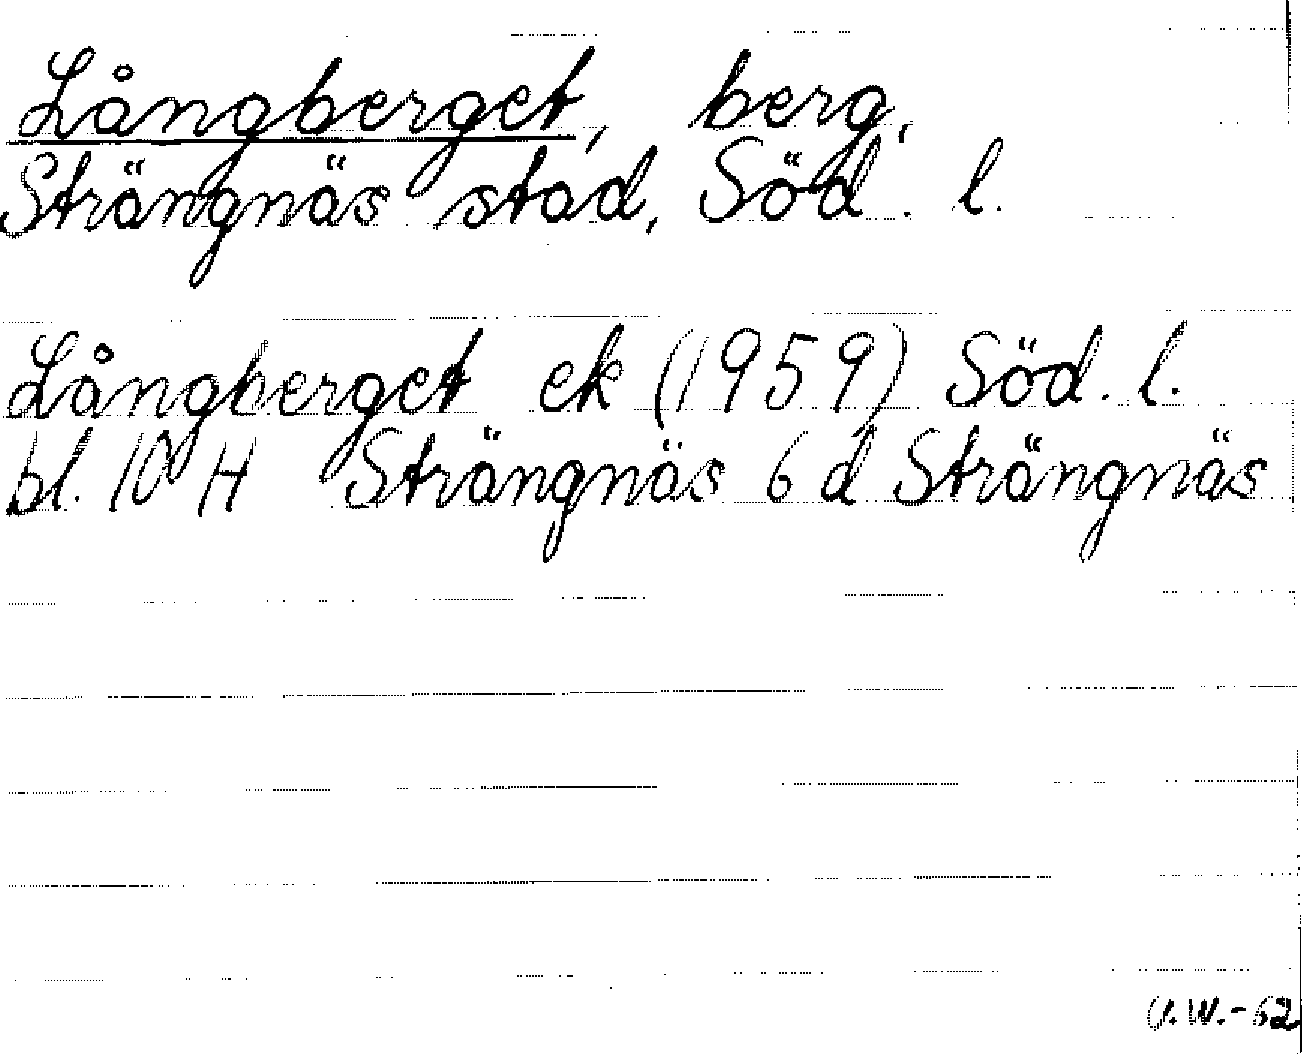 Långberget, berg,
Strängnäs stad, Söd. l.
Långberget ek (1959) Söd. l.
bl. 10 H Strängnäs 6 d Strängnäs
U.W.-62